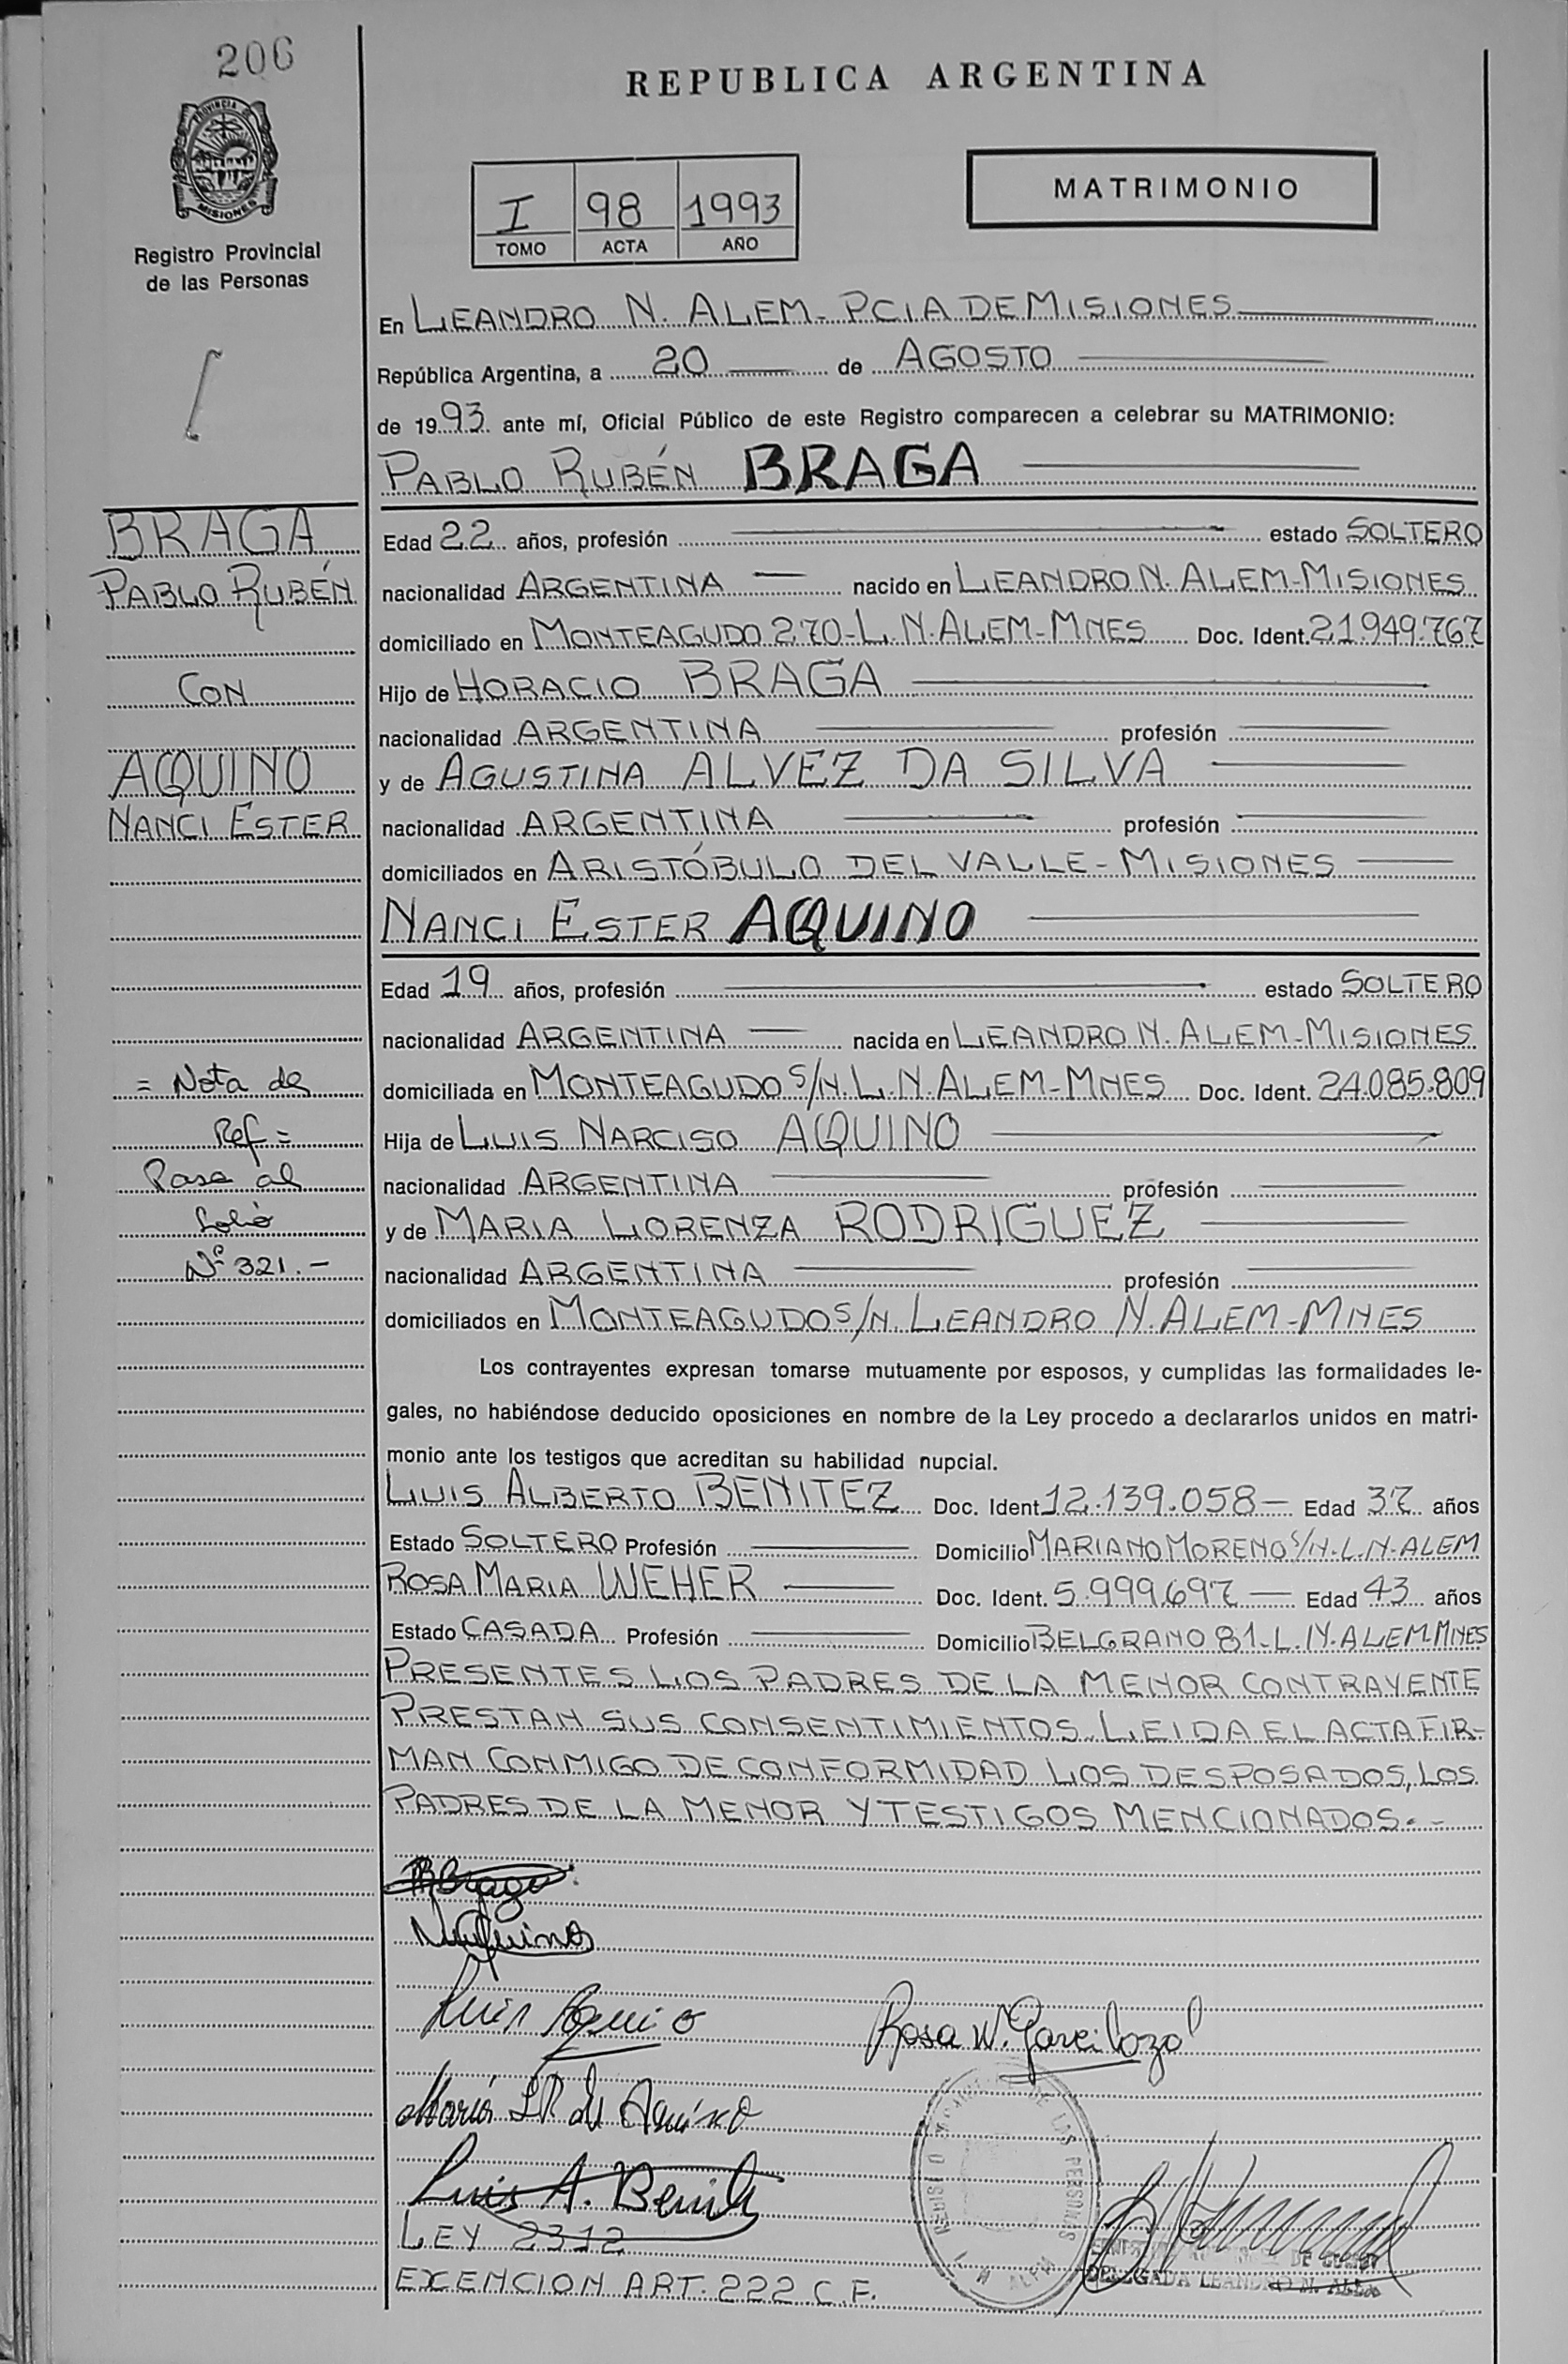 206
REPUBLICA ARGENTINA
PROVINCIA
MISIONES
Registro Provincial
de las Personas
I 98 1993
TOMO ACTA AÑO
MATRIMONIO
En LEANDRO N. ALEM - PCIA DE MISIONES
República Argentina, a 20 de AGOSTO
de 1993 ante mí, Oficial Público de este Registro comparecen a celebrar su MATRIMONIO:
PABLO RUBÉN BRAGA
BRAGA
PABLO RUBÉN
CON
AQUINO
NANCI ESTER
= Nota de
Ref =
Pasa al
folio
Nº 321.-
Edad 22 años, profesión estado SOLTERO
nacionalidad ARGENTINA nacido en LEANDRO N. ALEM - MISIONES
domiciliado en MONTEAGUDO 270 - L. N. ALEM - MNES Doc. Ident. 21.949.767
Hijo de HORACIO BRAGA
nacionalidad ARGENTINA profesión
y de AGUSTINA ALVEZ DA SILVA
nacionalidad ARGENTINA profesión
domiciliados en ARISTÓBULO DEL VALLE - MISIONES
NANCI ESTER AQUINO
Edad 19 años, profesión estado SOLTERO
nacionalidad ARGENTINA nacida en LEANDRO N. ALEM - MISIONES
domiciliada en MONTEAGUDO S/N. L. N. ALEM - MNES Doc. Ident. 24.085.809
Hija de LUIS NARCISO AQUINO
nacionalidad ARGENTINA profesión
y de MARIA LORENZA RODRIGUEZ
nacionalidad ARGENTINA profesión
domiciliados en MONTEAGUDO S/N. LEANDRO N. ALEM - MNES
Los contrayentes expresan tomarse mutuamente por esposos, y cumplidas las formalidades le-
gales, no habiéndose deducido oposiciones en nombre de la Ley procedo a declararlos unidos en matri-
monio ante los testigos que acreditan su habilidad nupcial.
LUIS ALBERTO BENITEZ Doc. Ident 12.139.058 - Edad 37 años
Estado SOLTERO Profesión Domicilio MARIANO MORENO S/N. L. N. ALEM
ROSA MARIA WEHER Doc. Ident. 5.999.697 - Edad 43 años
Estado CASADA Profesión Domicilio BELGRANO 81 - L. N. ALEM. MNES
PRESENTES LOS PADRES DE LA MENOR CONTRAYENTE
PRESTAN SUS CONSENTIMIENTOS. LEIDA EL ACTA FIR-
MAN CONMIGO DE CONFORMIDAD LOS DESPOSADOS, LOS
PADRES DE LA MENOR Y TESTIGOS MENCIONADOS.-
Braga
NAquino
Luis Aquino
Rosa W. Garcilazo
María L R de Aquino
Luis A. Benitez
LEY 2312
EXENCION ART. 222 C.F.
DE LAS PERSONAS
MISIONES
ALEM
DELEGADA LEANDRO N. ALEM